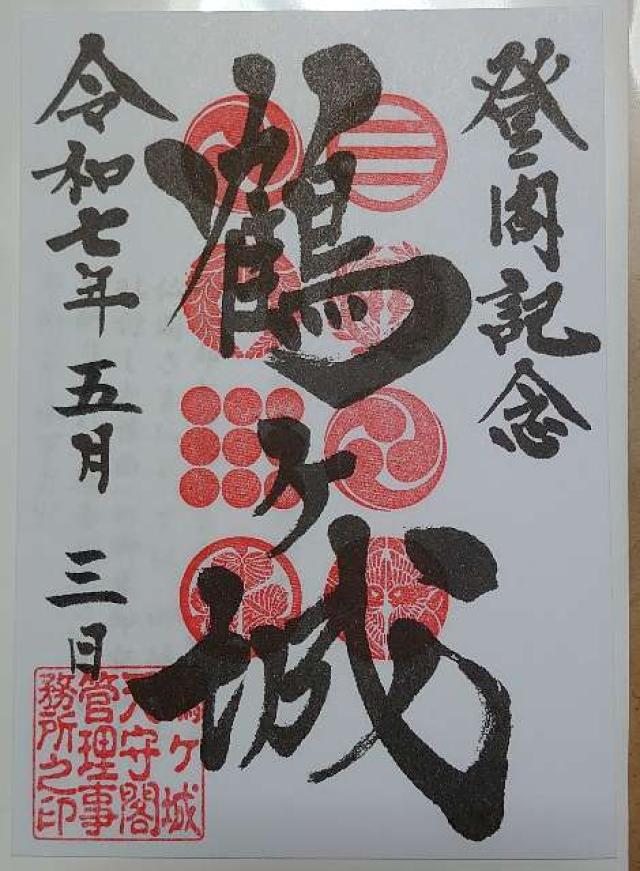 登閣記念
鶴ヶ城
令和七年 五月 三日
鶴ヶ城
天守閣
管理事
務所之印